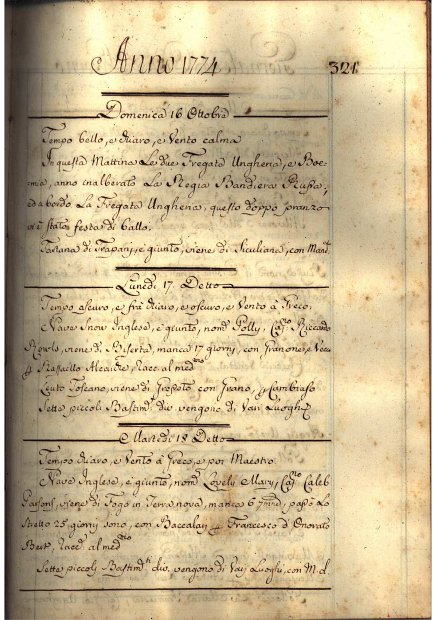 Anno 1774
321
Domenica 16 Ottobre
Tempo bello, e chiaro, e Vento calma
In questa Mattina Le due Fregata Ungheria, e Boe-
mia, anno inalberato La Regia Bandiera Russa,
ed a bordo La Fregata Ungheria, questo doppo pranzo
vi è stato festa di ballo.
Tartana di Trapani, e giunto, viene di Siculiana, con Mand
Lunedi 17 Detto
Tempo oscuro, e frà chiaro, e oscuro, e Vento à Greco.
Nave Snow Inglese, e giunto, nomo Polly, Capto Riccardo
viene di Biserta, manca 17 giorni, con Granone, e
Raffaello Alcaire, Racc. al medmo
Leuto Toscano, viene di con Grano, Cambiaso
Sette piccoli Bastimti div. vengono di Varj Luoghi
Martedi 18 Detto
Tempo chiaro, e Vento à Greco, e poi Maestro
Nave Inglese, e giunto, nomo Lovely Mary, Capto Caleb
Parsons, viene di Fogo in Terra nova, manca 6 passò Lo
Stretto 25 giorni sono, con Baccalari Francesco d Onorato
Bert, Racc. al medmo
Sette piccoli Bastimti div. vengono di Varj Luoghi, con M. d.